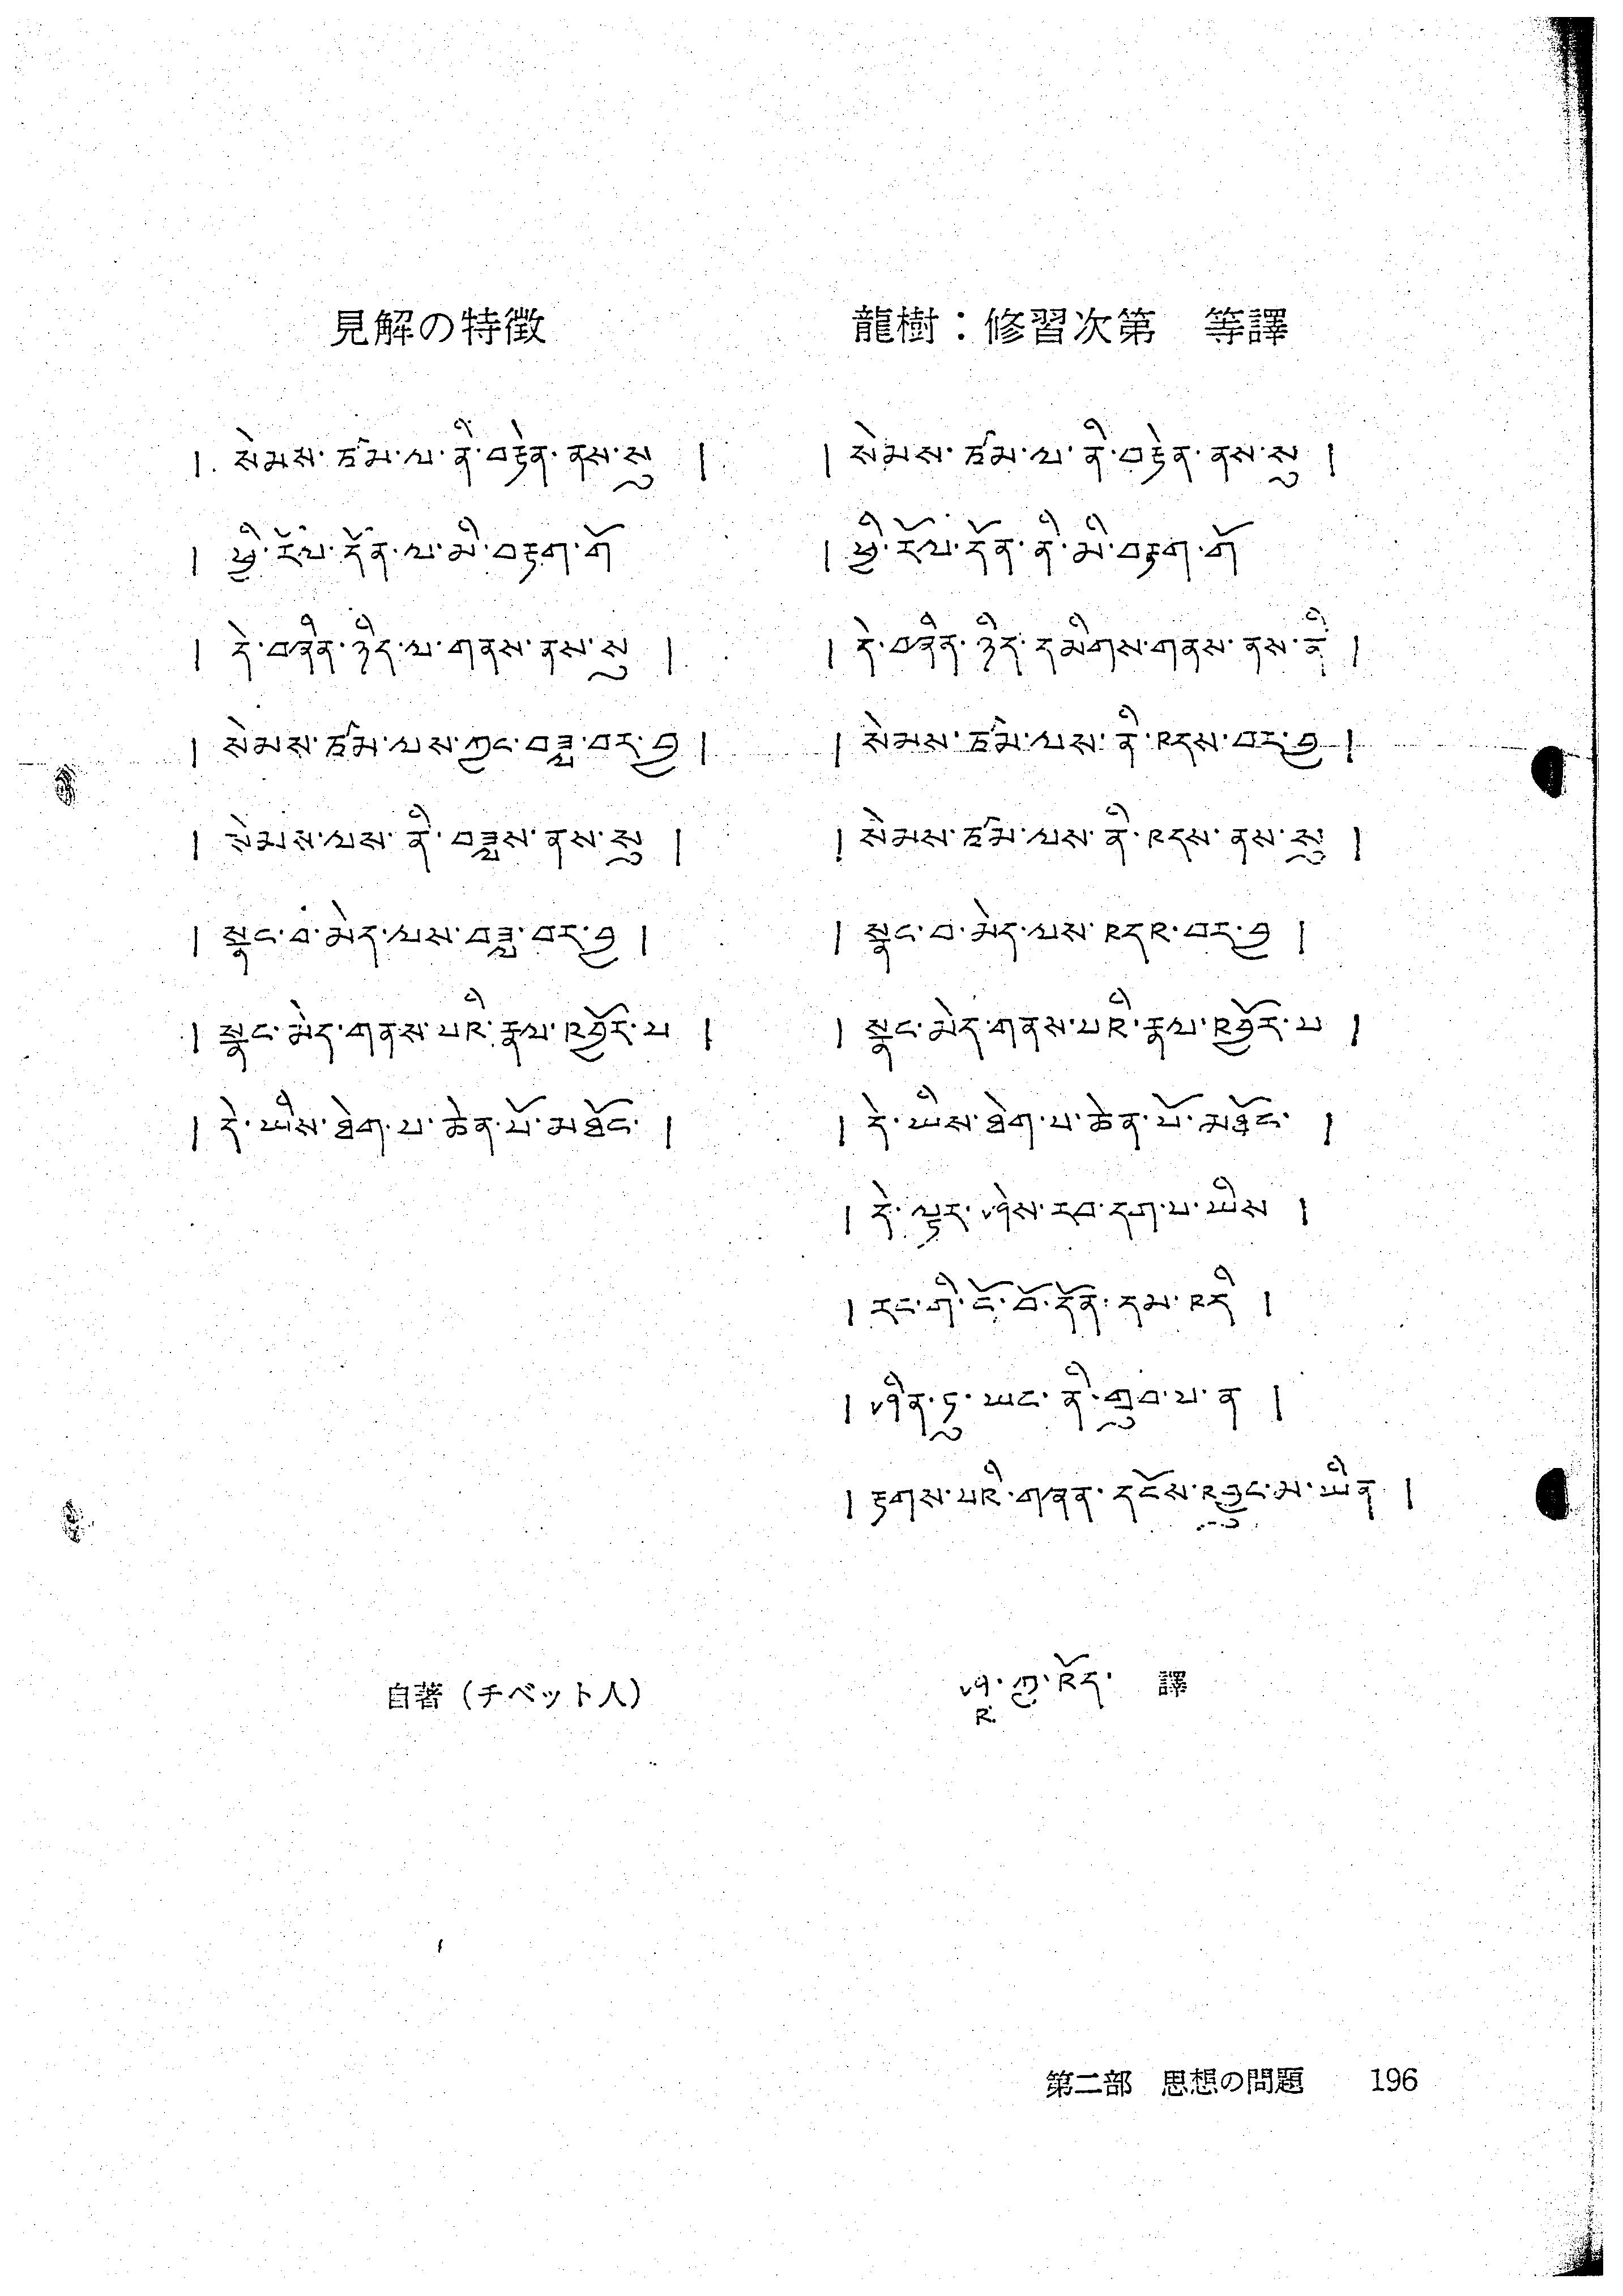 見解の特徴
། སེམས་ཙམ་ལ་ནི་བརྟེན་ནས་སུ །
། ཕྱི་རོལ་དོན་ལ་མི་བརྟག་གོ
། དེ་བཞིན་ཉིད་ལ་གནས་ནས་སུ །
། སེམས་ཙམ་ལས་ཀྱང་བཟླ་བར་བྱ །
། སེམས་ལས་ནི་བཟླས་ནས་སུ །
། སྣང་བ་མེད་ལས་བཟླ་བར་བྱ །
། སྣང་མེད་གནས་པའི་རྣལ་འབྱོར་པ །
། དེ་ཡིས་ཐེག་པ་ཆེན་པོ་མཐོང་ །
自著（チベット人）
龍樹：修習次第　等譯
། སེམས་ཙམ་ལ་ནི་བརྟེན་ནས་སུ །
། ཕྱི་རོལ་དོན་ནི་མི་བརྟག་གོ
། དེ་བཞིན་ཉིད་དམིགས་གནས་ནས་ནི །
། སེམས་ཙམ་ལས་ནི་འདས་བར་བྱ །
། སེམས་ཙམ་ལས་ནི་འདས་ནས་སུ །
། སྣང་བ་མེད་ལས་འདའ་བར་བྱ །
། སྣང་མེད་གནས་པའི་རྣལ་འབྱོར་པ །
། དེ་ཡིས་ཐེག་པ་ཆེན་པོ་མཐོང་ །
། དེ་ལྟར་ཤེས་རབ་དག་པ་ཡིས །
། རང་གི་ངོ་བོ་དོན་དམ་འདི །
། ཤིན་ཏུ་ཡང་ནི་གྲུབ་པ་ན །
། རྟགས་པའི་གཞན་དངོས་འབྱུང་མ་ཡིན །
ཤཱ་ཀྱ་འོད་ 譯
第二部　思想の問題　196